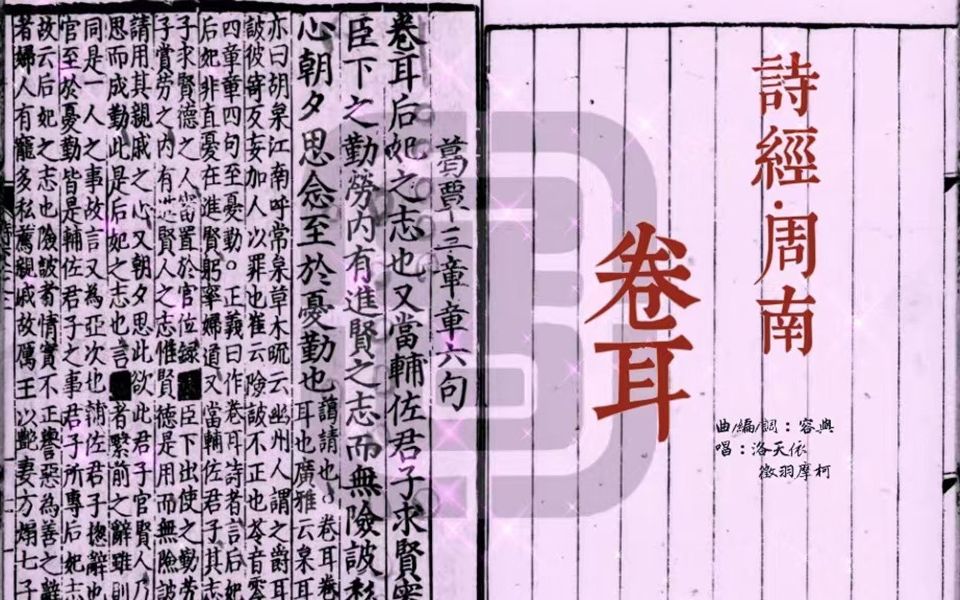 詩經·周南
卷耳
曲/編/調：容與
唱：洛天依
徵羽摩柯
葛覃三章章六句
卷耳后妃之志也又當輔佐君子求賢審
臣下之勤勞內有進賢之志而無險詖私
心朝夕思念至於憂勤也謁請也。卷耳卷
耳也廣雅云枲耳
亦曰胡枲江南呼常枲草木疏云幽州人謂之爵耳
詖彼寄友妄加人以罪也崔云險詖不正也苓音零
四章章四句至憂勤。正義曰作卷耳詩者言后妃
后妃非直憂在進賢躬率婦道又當輔佐君子其志
子求賢德之人審置於官位錄臣下出使之勤勞
子賞勞之內有進賢人之志惟賢德是用而無險詖
請用其親戚之心又朝夕思此欲此君子官賢人乃
思而成勤此是后妃之志也言者繫前之辭雖則
同是一人之事故言又為亞次也輔佐君子揔辭也
官至於憂勤皆是輔佐君子之事君子所專后妃志
故云后妃之志也險詖者情實不正譽惡為善之辭
者婦人有寵多私薦親戚故厲王以艷妻方煽七子